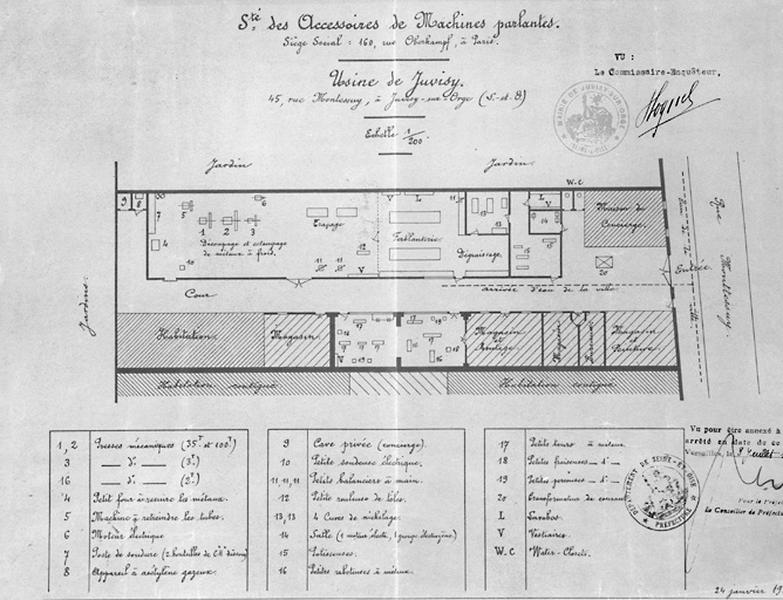 Sté des Accessoires de Machines parlantes.
Siège Social : 160, rue Oberkampf, à Paris.
VU :
Le Commissaire-Enquêteur,
Usine de Juvisy.
45, rue Montessuy, à Juvisy-sur-Orge (S-et-O)
MAIRIE DE JUVISY-SUR-ORGE
SEINE-&-OISE
Echelle 1/200
Jardin
Jardin
W.C
9 8
7 5 6
1 2 3
4
10
Découpage et estampage
de métaux à froid.
Traçage
11 11 11
12
V
V L
Ferblanterie
Dégraissage.
13 13
L
V
14
15
Maison du
Concierge.
20
Entrée
Rue Montessuy.
Jardins.
Cour
arrivée d'eau de la ville
Habitation.
Magasin
17
18
19
V
16
Magasin
et
Magasin
Magasin
et
Peinture
Habitation contiguë
Habitation contiguë
1, 2 Presses mécaniques (35T et 100T)
3 — d° — (3T)
16 — d° — (2T)
4 Petit four à recuire les métaux.
5 Machine à retreindre les tubes.
6 Moteur électrique
7 Poste de soudure
8 Appareil à acétylène gazeux.
9 Cave privée (concierge).
10 Petite soudeuse électrique.
11, 11, 11 Petits balanciers à main.
12 Petite rouleuse de tôles.
13, 13 4 Cuves de nickelage.
14 Salle
15 Polisseuses.
16 Petites raboteuses à métaux.
17 Petits tours à métaux.
18 Petites fraiseuses — d° —
19 Petites perceuses — d° —
20 Transformateur de courant
L Lavabos.
V Vestiaires.
W.C Water-Closets.
Vu pour être annexé à
arrêté en date de ce
Versailles, le
DÉPARTEMENT DE SEINE-ET-OISE
PRÉFECTURE
Pour le Préfet
Le Conseiller de Préfecture
24 janvier 19